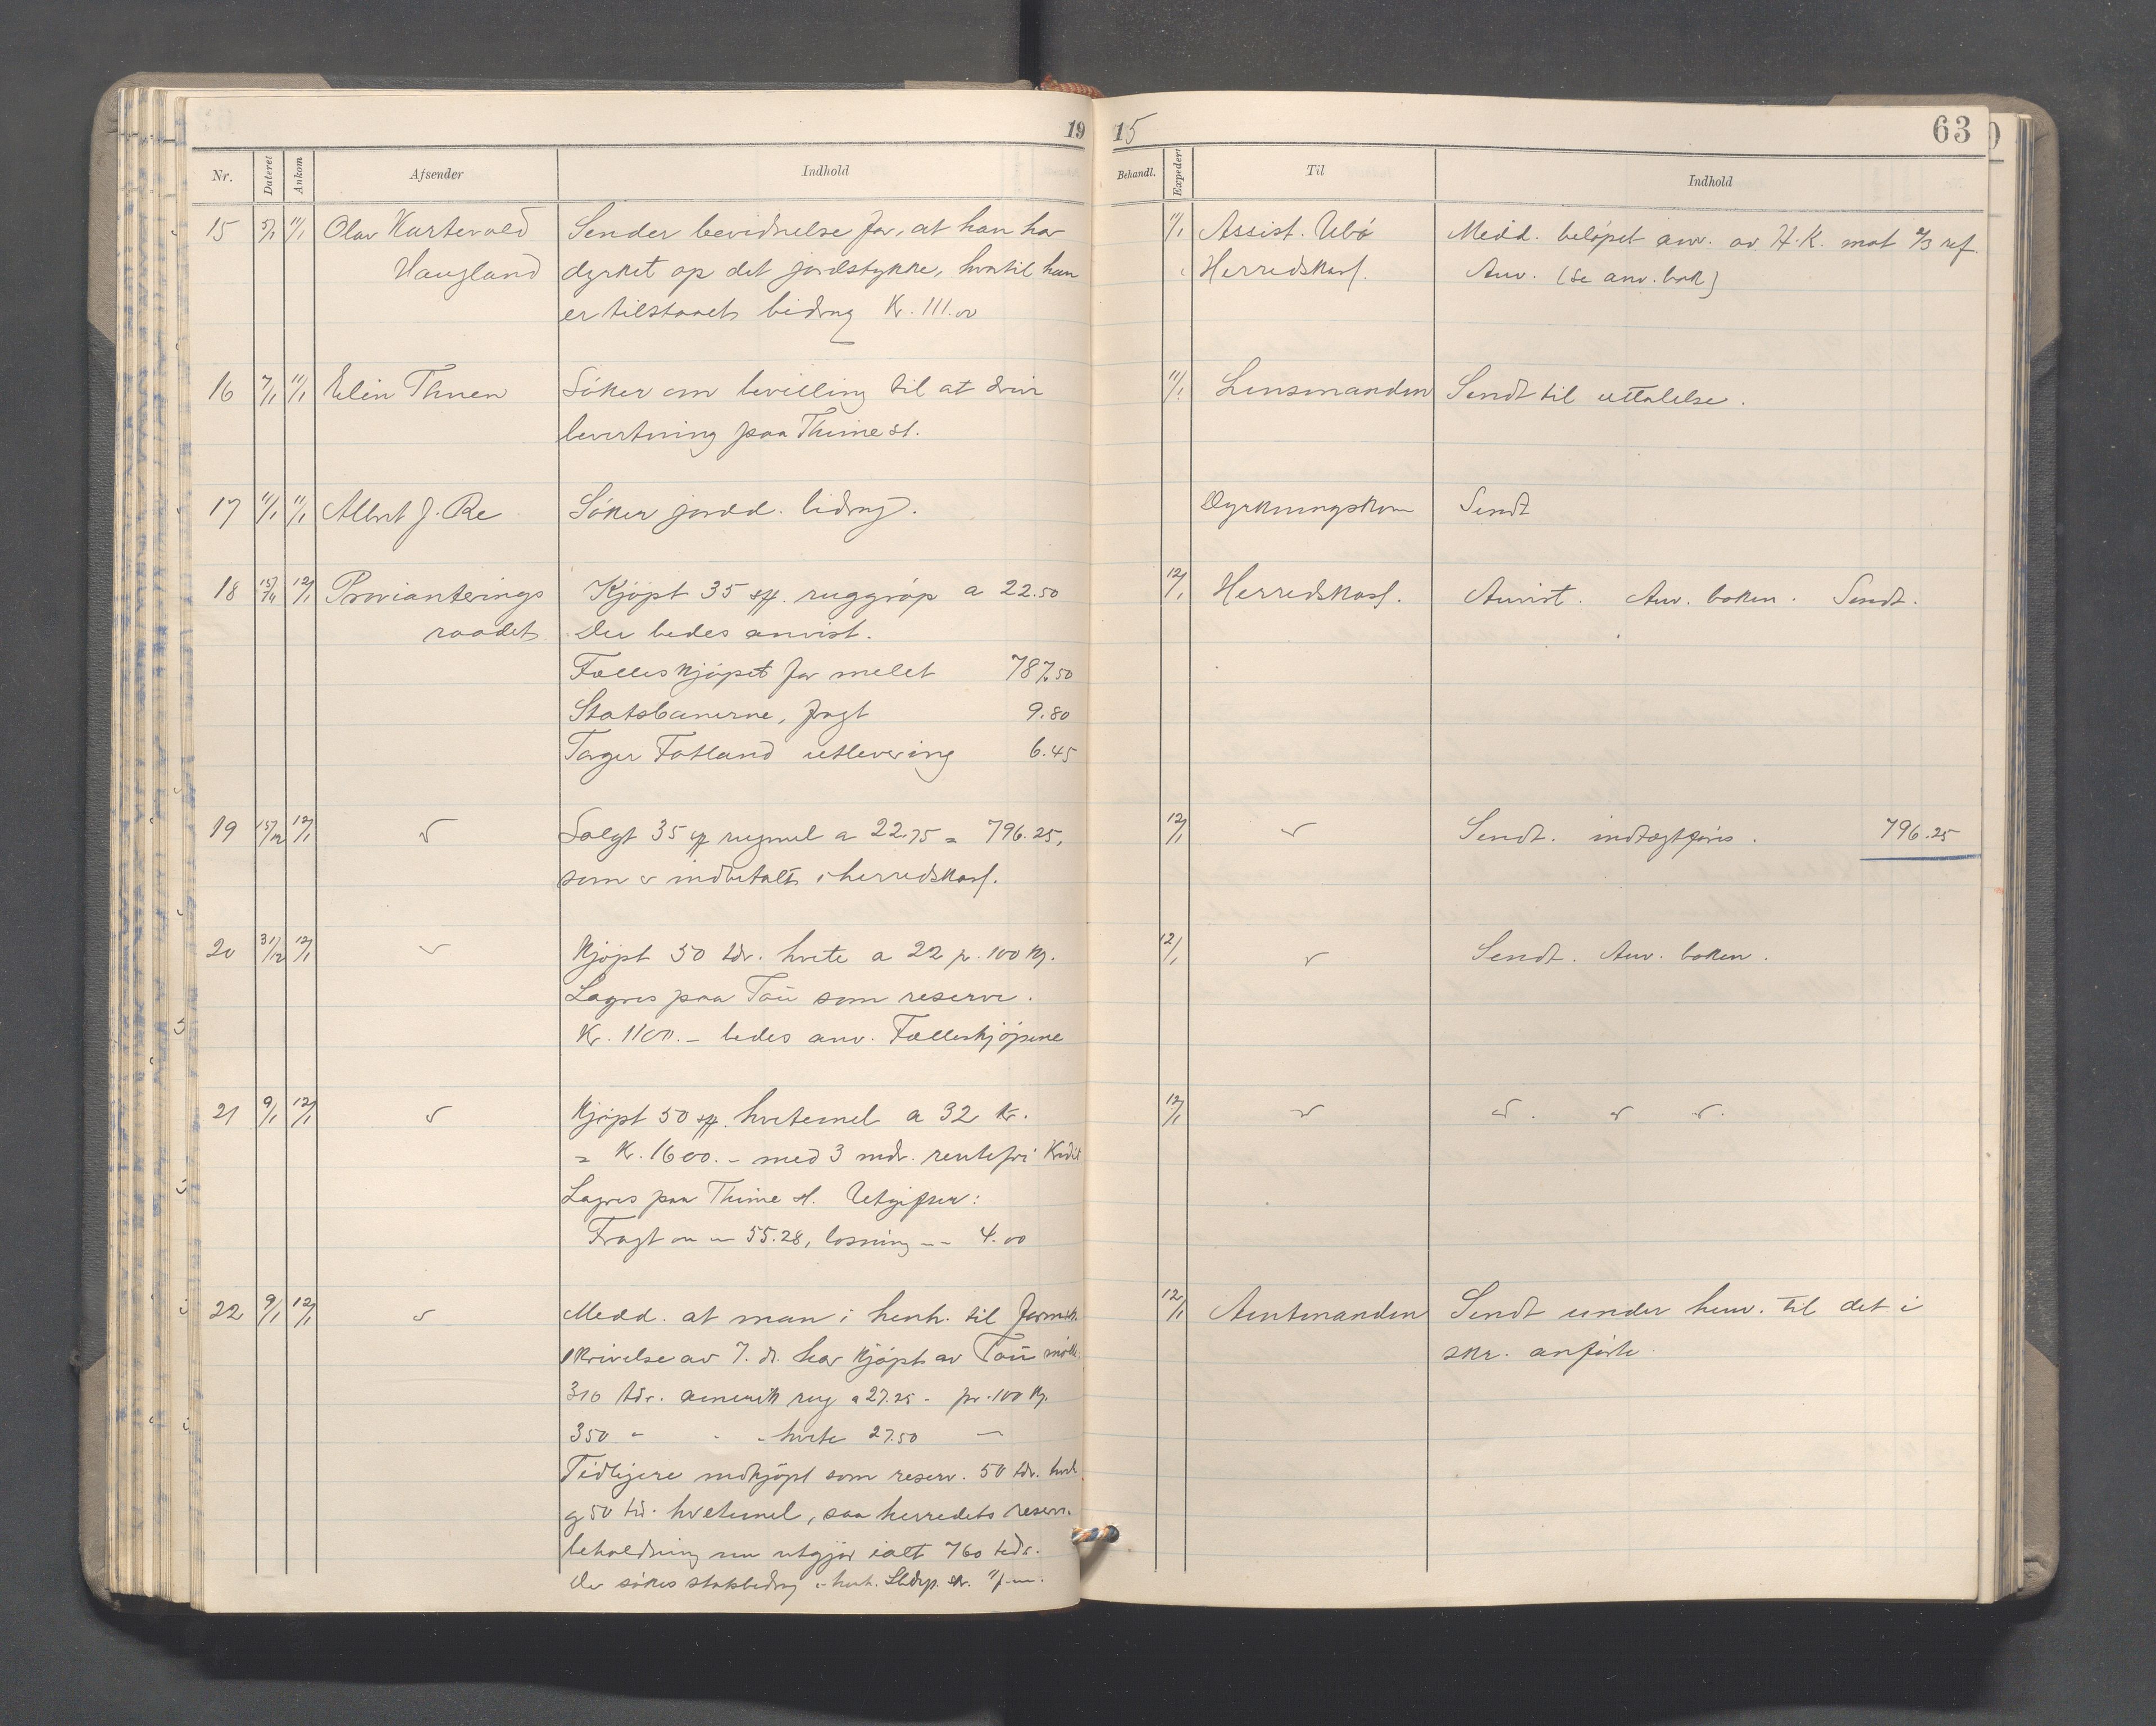 19
Nr. Dateret Ankom Afsender Indhold
15 5/1 11/1 Olav Kartevold Sender bevidnelse for, at han har
Haugland dyrket op det jordstykke, hvortil han
er tilstaaet bidrag Kr. 111.00
16 7/1 11/1 Elin Thuen Söker om bevilling til at driv
bevertning paa Thime st.
17 11/1 11/1 Albert J. Re Söker jordd. bidrag.
18 12/1 Provianterings Kjöpt 35 sp. ruggröp a 22.50
raadet Der bedes anvist.
Fælleskjöpet for melet 787.50
Statsbanerne, fragt 9.80
Tager Fotland utlevering 6.45
19 15/12 12/1 Solgt 35 sp rugmel a 22.75 = 796.25,
som er indbetalt i herredskass.
20 31/12 12/1 Kjöpt 50 tdr. hvete a 22 p. 100 kg.
Lagres paa Tou som reserve.
Kr. 1100.- bedes anv. Fælleskjöpene
21 9/1 12/1 Kjöpt 50 sp. hvetemel a 32 kr.
= Kr. 1600.- med 3 mdr. rentefri Kredit
Lagres paa Thime st. Utgifter:
Fragt 55.28, losning -- 4.00
22 9/1 12/1 Medd. at man i henh. til
skrivelse av 7. ds. har kjöpt av Tou mölle
310 tdr. amerik rug a 27.25 - pr. 100 kg.
350 " - - hvete 27.50 —
Tidligere indkjöpt som reserv. 50 tdr. hvete
g 50 td. hvetemel, saa herredets reserv.
beholdning nu utgjör ialt 760 tdr.
Der sökes statsbidrag i henh.
15 63
Behandl. Expedert Til Indhold
11/1 Assist. Ubö Medd. belöpet anv. av H.K. mot 2/3 ref.
Herredskass. Anv. (se anv. bok)
11/1 Lensmanden Sendt til uttalelse.
Dyrkningskom Sendt
12/1 Herredskass. Anvist. Anv. boken. Sendt.
12/1 Sendt. indtægtföres. 796.25
12/1 Sendt. Anv. boken.
12/1
12/1 Amtmanden Sendt under henv. til det i
skr. anförte.